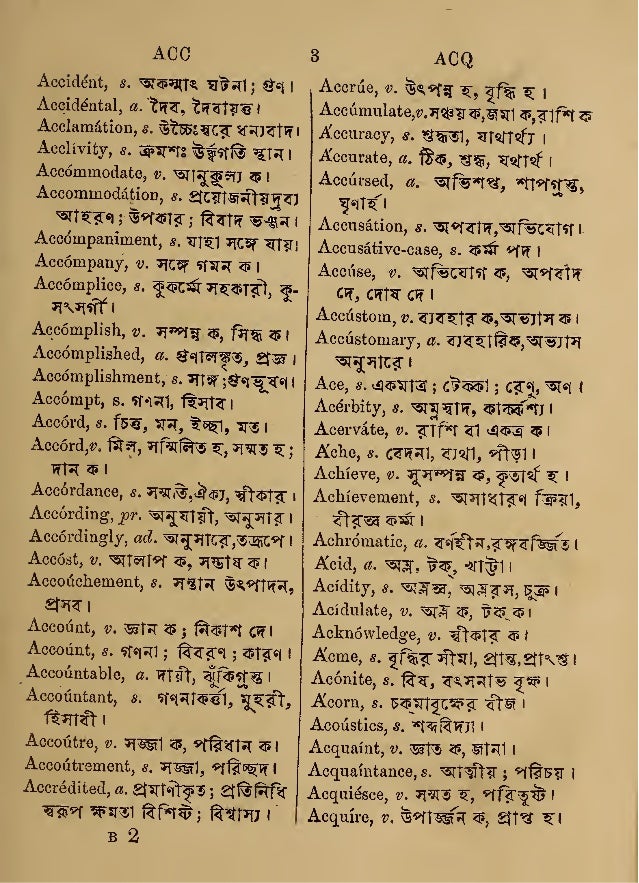 ACC 3 ACQ
Accidént, s. অকস্মাৎ ঘটনা; গুণ।
Accidéntal, a. দৈব, দৈবায়ত্ত।
Acclamátion, s. উচ্চৈঃস্বরে ধন্যবাদ।
Acclívity, s. ক্রমশঃ ঊর্দ্ধগতি স্থান।
Accómmodate, v. আনুকূল্য ক।
Accommodátion, s. প্রয়োজনীয়দ্রব্য
আহরণ; উপকার; বিবাদ ভঞ্জন।
Accómpaniment, s. যাহা সঙ্গে যায়।
Accómpany, v. সঙ্গে গমন ক।
Accómplice, s. কুকর্ম্মে সহকারী, কু-
সংসর্গী।
Accómplish, v. সম্পন্ন ক, সিদ্ধ ক।
Accómplished, a. গুণালঙ্কৃত, প্রজ্ঞ।
Accómplishment, s. সাঙ্গ;গুণভূষণ।
Accómpt, s. গণনা, হিসাব।
Accórd, s. চিত্ত, মন, ইচ্ছা, মত।
Accórd,v. মিল, সম্মিলিত হ, সম্মত হ;
দান ক।
Accórdance, s. সম্মতি,ঐক্য, স্বীকার।
Accórding, pr. অনুযায়ী, অনুসার।
Accórdingly, ad. অনুসারে,তদ্রূপে।
Accóst, v. আলাপ ক, সম্ভাষ ক।
Accoúchement, s. সন্তান উৎপাদন,
প্রসব।
Accoúnt, v. জ্ঞান ক; নিকাশ দে।
Accoúnt, s. গণনা; বিবরণ; কারণ।
Accoúntable, a. দায়ী, ঝুঁকিগ্রস্ত।
Accoúntant, s. গণনাকর্ত্তা, মুহরী,
হিসাবী।
Accoútre, v. সজ্জা ক, পরিধান ক।
Accoútrement, s. সজ্জা, পরিচ্ছদ।
Accrédited, a. প্রমাণীকৃত; প্রতিনিধি
স্বরূপ ক্ষমতা বিশিষ্ট; বিশ্বাস্য।
B 2
Accrúe, v. উৎপন্ন হ, বৃদ্ধি হ।
Accúmulate,v.সঞ্চয় ক,জমা ক,রাশি ক
A'ccuracy, s. শুদ্ধতা, যাথার্থ্য।
A'ccurate, a. ঠিক, শুদ্ধ, যথার্থ।
Accúrsed, a. অভিশপ্ত, শাপগ্রস্ত,
ঘৃণার্হ।
Accusátion, s. অপবাদ,অভিযোগ।
Accusátive-case, s. কর্ম্ম পদ।
Accúse, v. অভিযোগ ক, অপবাদ
দে, দোষ দে।
Accústom, v. ব্যবহার ক,অভ্যাস ক।
Accústomary, a. ব্যবহারিক,অভ্যাস
অনুসারে।
Ace, s. একমাত্র; টেক্কা; রেণু, অণ।
Acérbity, s. অম্লস্বাদ, কার্কশ্য।
Acerváte, v. রাশি বা একত্র ক।
A'che, s. বেদনা, ব্যথা, পীড়া।
Achíeve, v. সুসম্পন্ন ক, কৃতার্থ হ।
Achíevement, s. অসাধারণ ক্রিয়া,
বীরত্ব কর্ম্ম।
Achrómatic, a. বর্ণহীন,রঙ্গবর্জ্জিত।
A'cid, a. অম্ল, টক্, খাট্টা।
Acídity, s. অম্লত্ব, অম্লরস, চুক্র।
Acídulate, v. অম্ল ক, টক্ ক।
Acknówledge, v. স্বীকার ক।
A'cme, s. বৃদ্ধির সীমা, প্রান্ত,প্রাংশু।
Acónite, s. বিষ, বৎসনাভ বৃক্ষ।
A'corn, s. চকমাবৃক্ষের বীজ।
Acoústics, s. শব্দবিদ্যা।
Acquaínt, v. জ্ঞাত ক, জানা।
Acquaíntance, s. আত্মীয়; পরিচয়।
Acquiésce, v. সম্মত হ, পরিতুষ্ট।
Acquíre, v. উপার্জ্জন ক, প্রাপ্ত হ।